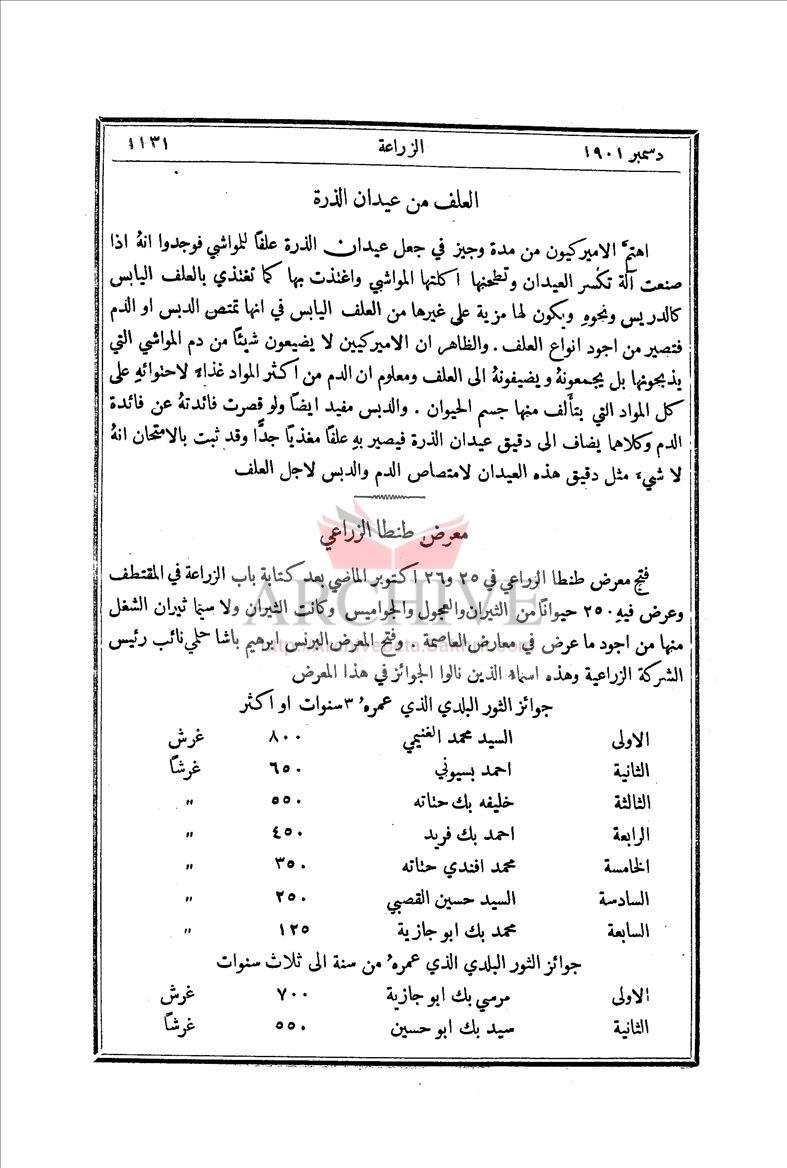 دسمبر ١٩٠١ الزراعة ١١٣١
العلف من عيدان الذرة
اهتمَّ الاميركيون من مدة وجيز في جعل عيدان الذرة علفًا للمواشي فوجدوا انهُ اذا
صنعت آلة تكسر العيدان وتطحنها اكلتها المواشي واغتذت بها كما تغتذي بالعلف اليابس
كالدريس ونحوهِ ويكون لها مزية على غيرها من العلف اليابس في انها تمتص الدبس او الدم
فتصير من اجود انواع العلف . والظاهر ان الاميركيين لا يضيعون شيئًا من دم المواشي التي
يذبحونها بل يجمعونهُ ويضيفونهُ الى العلف ومعلوم ان الدم من اكثر المواد غذاءً لاحتوائهِ على
كل المواد التي يتألف منها جسم الحيوان . والدبس مفيد ايضًا ولو قصرت فائدتهُ عن فائدة
الدم وكلاهما يضاف الى دقيق عيدان الذرة فيصير بهِ علفًا مغذيًا جدًّا وقد ثبت بالامتحان انهُ
لا شيءَ مثل دقيق هذه العيدان لامتصاص الدم والدبس لاجل العلف
معرض طنطا الزراعي
فتح معرض طنطا الزراعي في ٢٥ و٢٦ اكتوبر الماضي بعد كتابة باب الزراعة في المقتطف
وعرض فيهِ ٢٥٠ حيوانًا من الثيران والعجول والجواميس وكانت الثيران ولا سيما ثيران الشغل
منها من اجود ما عرض في معارض العاصمة . وفتح المعرض البرنس ابرهيم باشا حلمي نائب رئيس
الشركة الزراعية وهذه اسماءُ الذين نالوا الجوائز في هذا المعرض
جوائز الثور البلدي الذي عمرهُ ٣ سنوات او اكثر
الاولى السيد محمد الغنيمي ٨٠٠ غرش
الثانية احمد بسيوني ٦٥٠ غرشًا
الثالثة خليفه بك حتاته ٥٥٠ "
الرابعة احمد بك فريد ٤٥٠ "
الخامسة محمد افندي حتاته ٣٥٠ "
السادسة السيد حسين القصبي ٢٥٠ "
السابعة محمد بك ابو جازية ١٢٥ "
جوائز الثور البلدي الذي عمرهُ من سنة الى ثلاث سنوات
الاولى مرسي بك ابو جازية ٧٠٠ غرش
الثانية سيد بك ابو حسين ٥٥٠ غرشًا
ARCHIVE